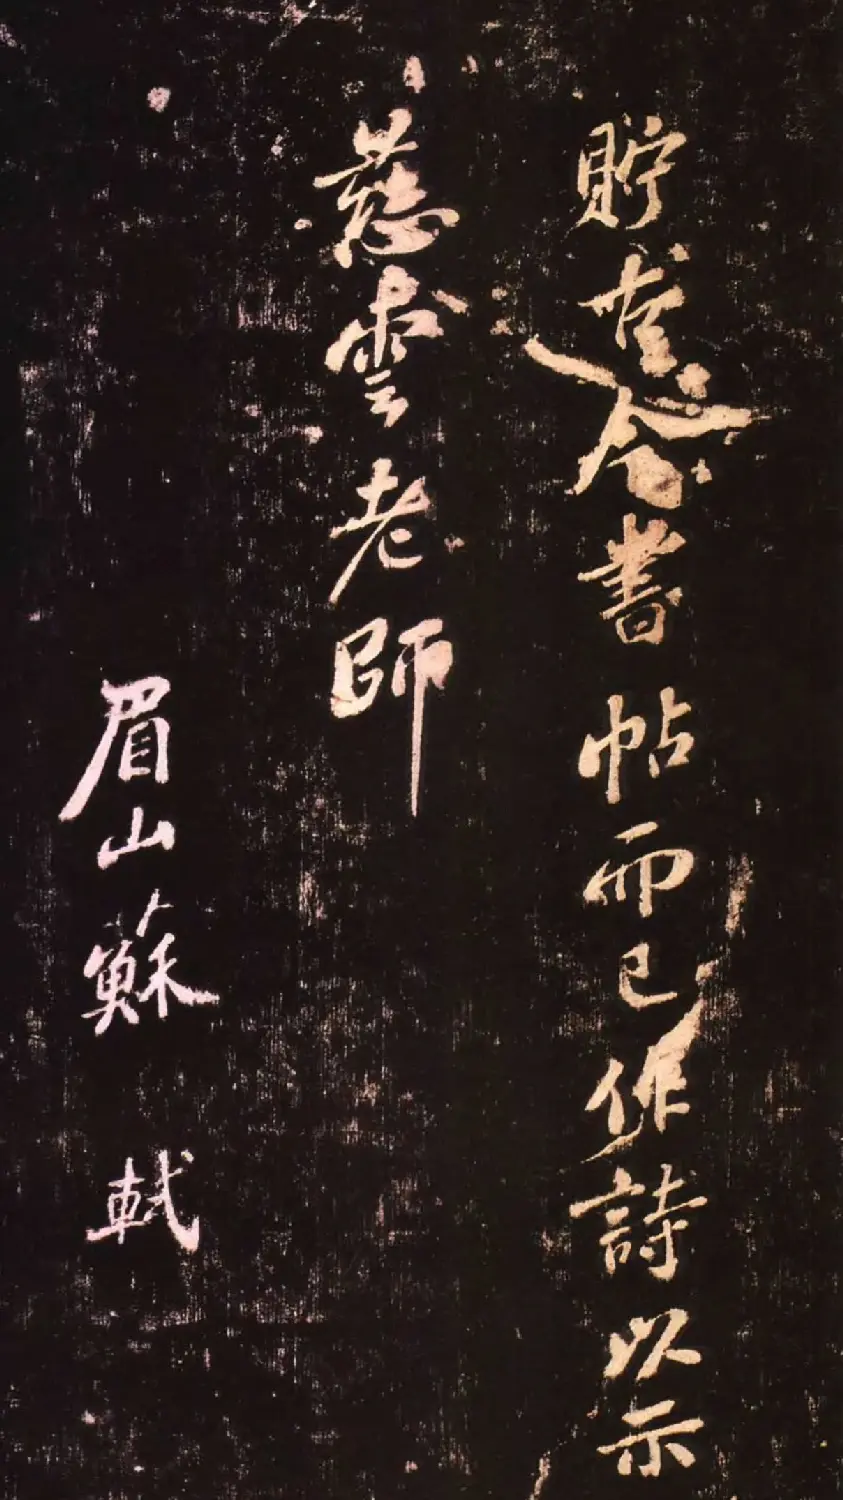 貯古今書帖而已作詩以示
慈雲老師
眉山蘇軾